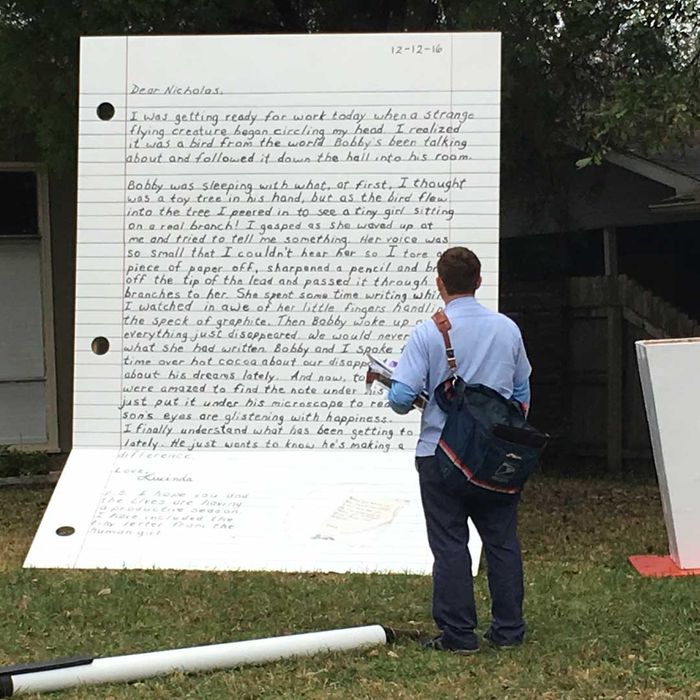 12-12-16
Dear Nicholas,
I was getting ready for work today when a strange
flying creature began circling my head. I realized
it was a bird from the world Bobby's been talking
about and followed it down the hall into his room.
Bobby was sleeping with what, at first, I thought
was a toy tree in his hand, but as the bird flew
into the tree I peered in to see a tiny girl sitting
on a real branch! I gasped as she waved up at
me and tried to tell me something. Her voice was
so small that I couldn't hear her so I tore a
piece of paper off, sharpened a pencil and br
off the tip of the lead and passed it through
branches to her. She spent some time writing whi
I watched in awe of her little fingers handlin
the speck of graphite. Then Bobby woke up a
everything just disappeared. We would never
what she had written. Bobby and I spoke
time over hot cocoa about our disapp
about his dreams lately. And now, to
were amazed to find the note under his
just put it under his microscope to rea
son's eyes are glistening with happiness.
I finally understand what has been getting to
lately. He just wants to know he's making a
difference.
Love,
Lucinda
P.S. I hope you and
the elves are having
a productive season.
I have included the
tiny letter from the
human girl.